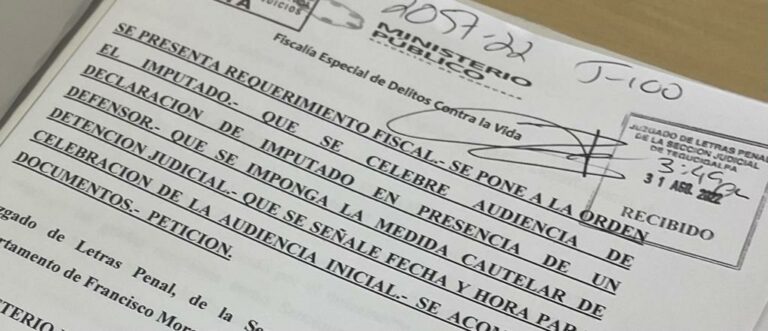 JUICIOS
TA
2057-22
J-100
MINISTERIO
PÚBLICO
Fiscalía Especial de Delitos Contra la Vida
JUZGADO DE LETRAS PENAL
DE LA SECCIÓN JUDICIAL
DE TEGUCIGALPA
3:45
31 AGO. 2022
RECIBIDO
SE PRESENTA REQUERIMIENTO FISCAL.- SE PONE A LA ORDEN
EL IMPUTADO.- QUE SE CELEBRE AUDIENCIA DE
DECLARACION DE IMPUTADO EN PRESENCIA DE UN
DEFENSOR.- QUE SE IMPONGA LA MEDIDA CAUTELAR DE
DETENCION JUDICIAL.- QUE SE SEÑALE FECHA Y HORA PAR
CELEBRACION DE LA AUDIENCIA INICIAL.- SE ACOM
DOCUMENTOS.- PETICION.
zgado de Letras Penal, de la Se
artamento de Francisco Mora